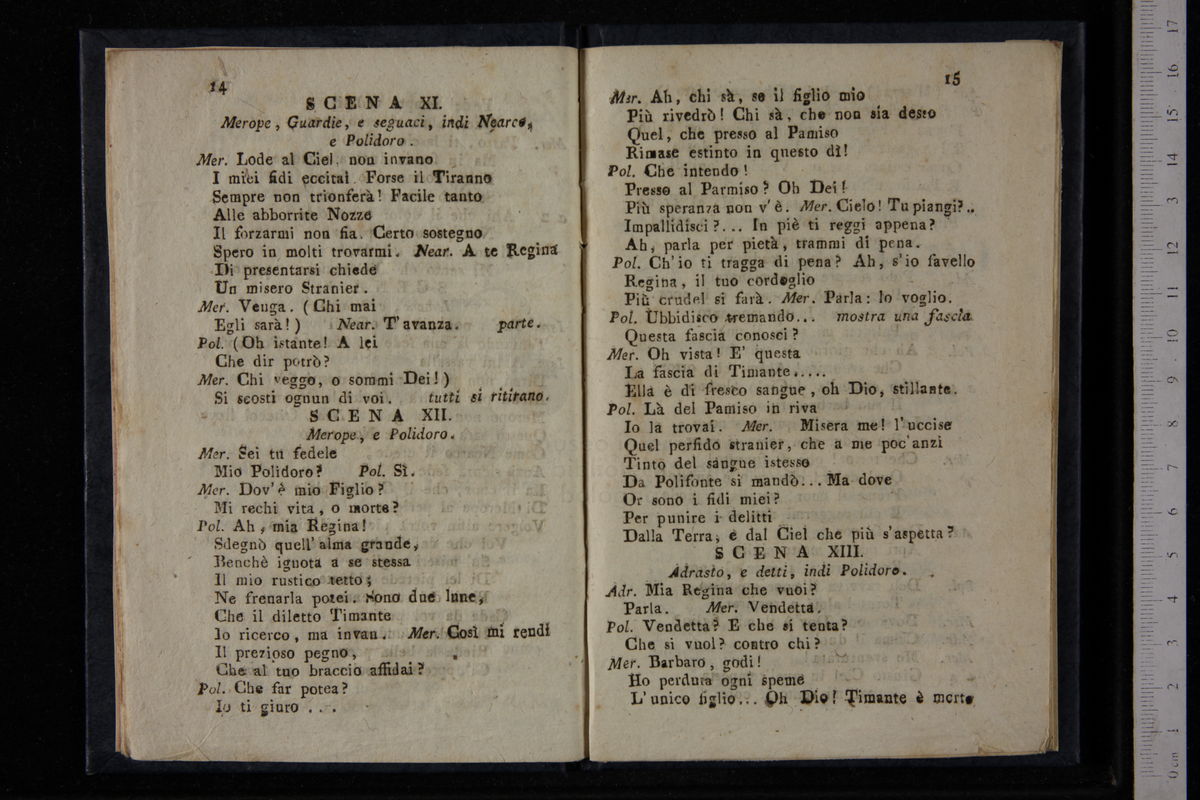 14
SCENA XI.
Merope, Guardie, e seguaci, indi Nearco,
e Polidoro.
Mer. Lode al Ciel, non invano
I miei fidi eccitai. Forse il Tiranno
Sempre non trionferà! Facile tanto
Alle abborrite Nozze
Il forzarmi non fia. Certo sostegno
Spero in molti trovarmi. Near. A te Regina
Di presentarsi chiede
Un misero Stranier.
Mer. Venga. (Chi mai
Egli sarà!) Near. T'avanza. parte.
Pol. (Oh istante! A lei
Che dir potrò?
Mer. Chi veggo, o sommi Dei!)
Si scosti ognun di voi. tutti si ritirano.
SCENA XII.
Merope, e Polidoro.
Mer. Sei tu fedele
Mio Polidoro? Pol. Sì.
Mer. Dov'è mio Figlio?
Mi rechi vita, o morte?
Pol. Ah, mia Regina!
Sdegnò quell'alma grande,
Benchè ignota a se stessa
Il mio rustico tetto;
Ne frenarla potei. Sono due lune,
Che il diletto Timante
Io ricerco, ma invan. Mer. Così mi rendi
Il prezioso pegno,
Che al tuo braccio affidai?
Pol. Che far potea?
Io ti giuro . . .
15
Mer. Ah, chi sà, se il figlio mio
Più rivedrò! Chi sà, che non sia desso
Quel, che presso al Pamiso
Rimase estinto in questo dì!
Pol. Che intendo!
Presso al Parmiso? Oh Dei!
Più speranza non v'è. Mer. Cielo! Tu piangi?..
Impallidisci?... In piè ti reggi appena?
Ah, parla per pietà, trammi di pena.
Pol. Ch'io ti tragga di pena? Ah, s'io favello
Regina, il tuo cordoglio
Più crudel si farà. Mer. Parla: lo voglio.
Pol. Ubbidisco tremando... mostra una fascia
Questa fascia conosci?
Mer. Oh vista! E' questa
La fascia di Timante.....
Ella è di fresco sangue, oh Dio, stillante.
Pol. Là del Pamiso in riva
Io la trovai. Mer. Misera me! l'uccise
Quel perfido stranier, che a me poc'anzi
Tinto del sangue istesso
Da Polifonte si mandò... Ma dove
Or sono i fidi miei?
Per punire i delitti
Dalla Terra, e dal Ciel che più s'aspetta?
SCENA XIII.
Adrasto, e detti, indi Polidoro.
Adr. Mia Regina che vuoi?
Parla. Mer. Vendetta.
Pol. Vendetta? E che si tenta?
Che si vuol? contro chi?
Mer. Barbaro, godi!
Ho perduta ogni speme
L'unico figlio... Oh Dio! Timante è morto